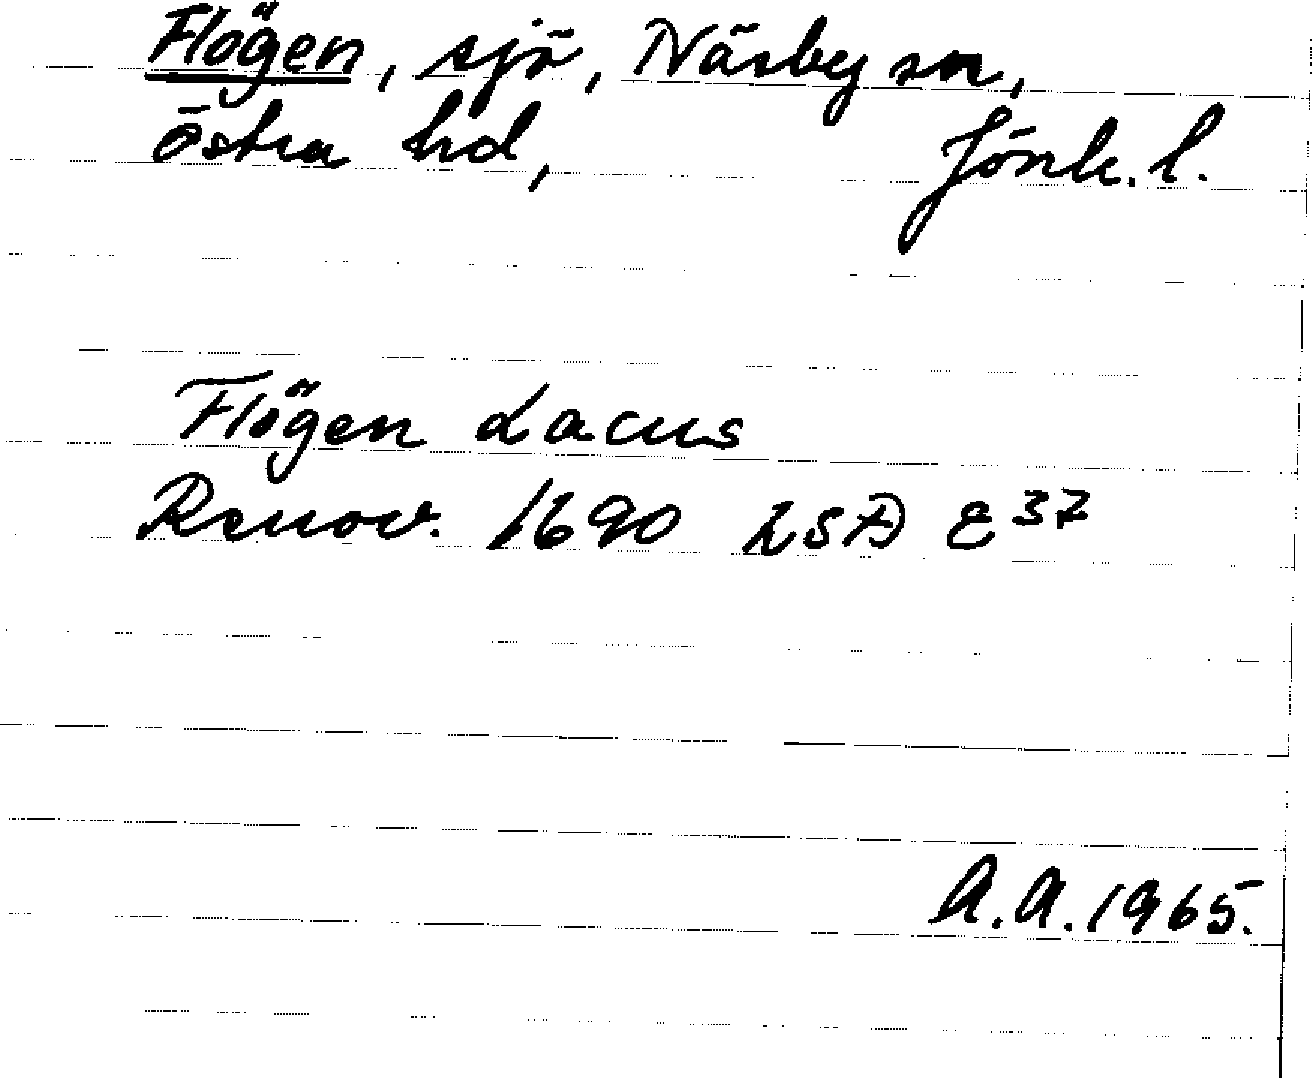 Flögen, sjö, Näsby sn,
Östra hd, Jönk. l.
Flögen Lacus
Renov. 1690 LSA E 37
A.A. 1965.